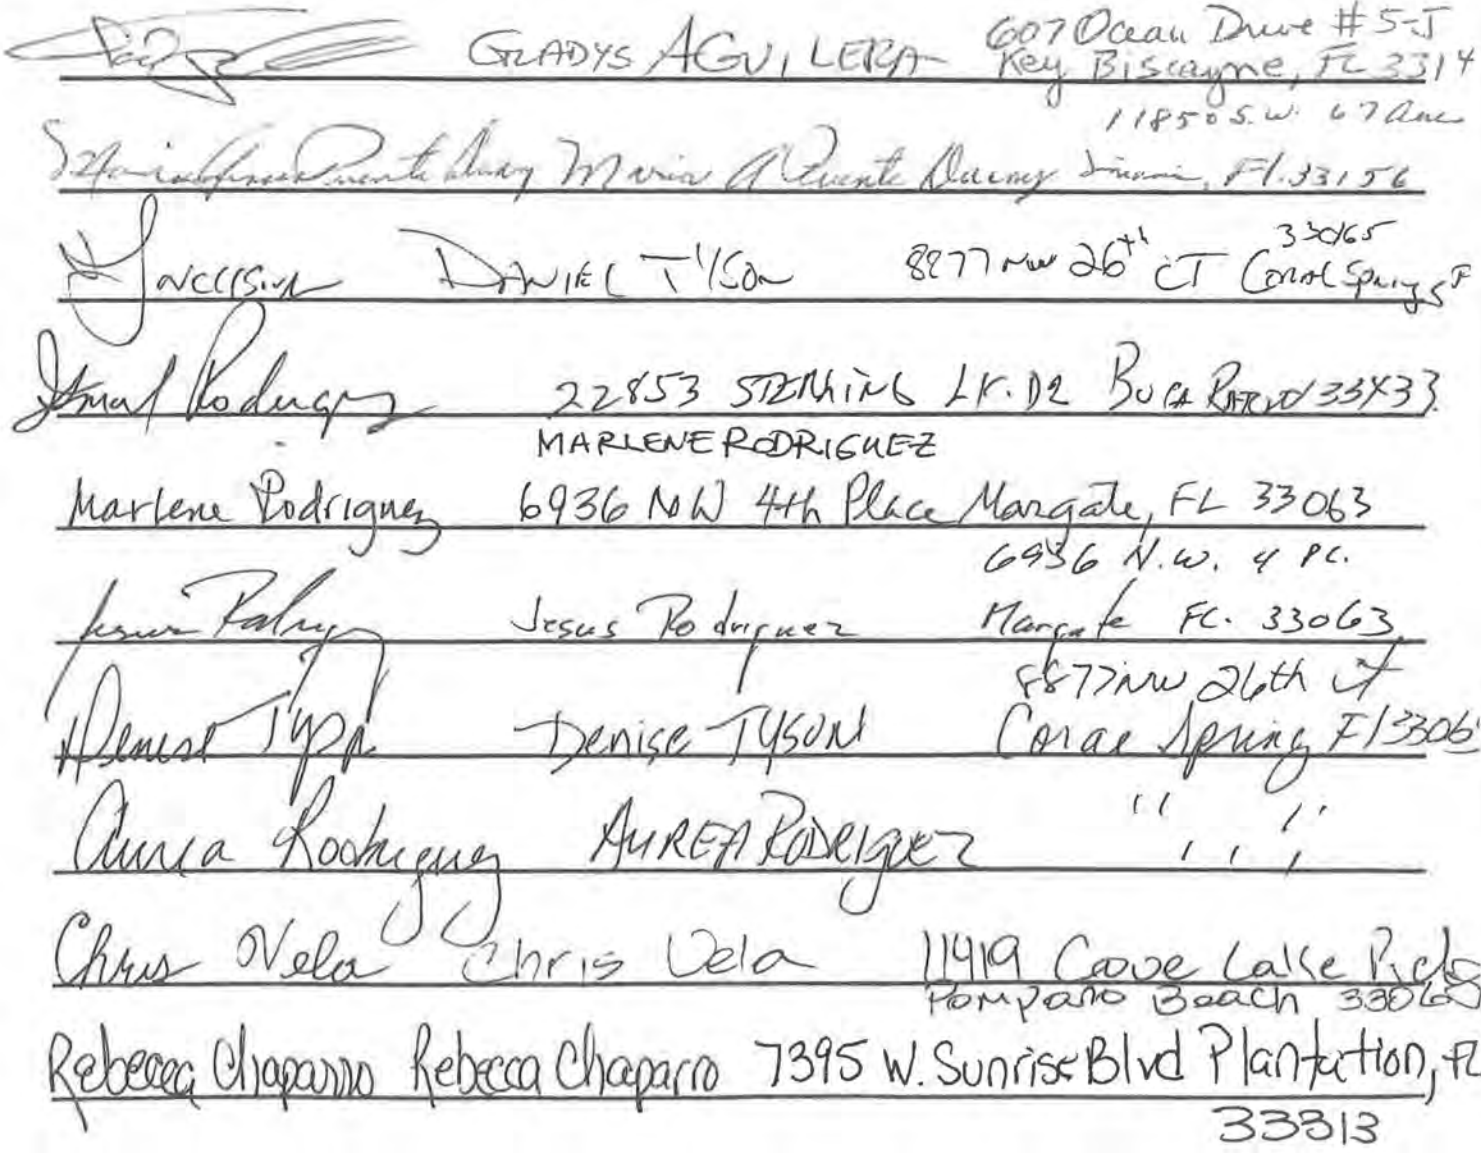 GLADYS AGUILERA 607 Ocean Drive # 5-J
Key Biscayne, FL 3314
11850 S.W. 67 Ave
Maria A Puente Duany Miami, Fl. 33156
DANIEL TYSON 8877 NW 26th CT Coral Springs F
33065
Rodriguez 22853 STERLING LK. D2 BOCA RATON 33433
MARLENE RODRIGUEZ
Marlene Rodriguez 6936 NW 4th Place Margate, FL 33063
6936 N.W. 4 PL.
Jesus Rodriguez Margate FL. 33063
8877 NW 26th ct
Denise Tyson Denise TYSON Coral Spring Fl 3306
Aurea Rodriguez AUREA RODRIGUEZ " "
Chris Vela Chris Vela 11419 Cove Lake Rd
Pompano Beach
Rebecca Chaparro Rebecca Chaparro 7395 W. Sunrise Blvd Plantation, FL
33313